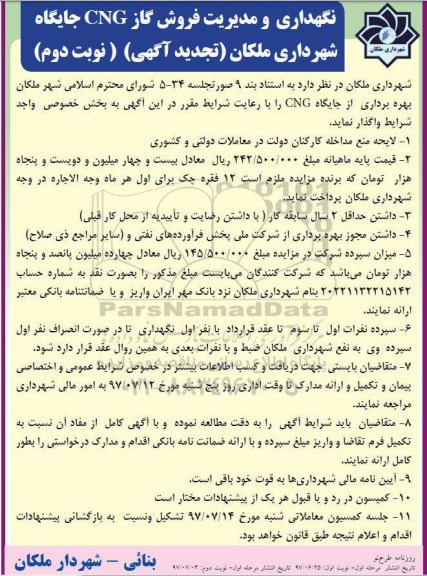 نگهداری و مدیریت فروش گاز CNG جایگاه
شهرداری ملکان (تجدید آگهی) ( نوبت دوم)
شهرداری ملکان
شهرداری ملکان در نظر دارد به استناد بند ۹ صورتجلسه ۳۴-۵ شورای محترم اسلامی شهر ملکان
بهره برداری از جایگاه CNG را با رعایت شرایط مقرر در این آگهی به بخش خصوصی واجد
شرایط واگذار نماید.
۱- لایحه منع مداخله کارکنان دولت در معاملات دولتی و کشوری
۲- قیمت پایه ماهیانه مبلغ ۲۴۲/۵۰۰/۰۰۰ ریال معادل بیست و چهار میلیون و دویست و پنجاه
هزار تومان که برنده مزایده ملزم است ۱۲ فقره چک برای اول هر ماه وجه الاجاره در وجه
شهرداری ملکان پرداخت نماید.
۳- داشتن حداقل ۲ سال سابقه کار ( با داشتن رضایت و تأییدیه از محل کار قبلی)
۴- داشتن مجوز بهره برداری از شرکت ملی پخش فرآورده‌های نفتی و (سایر مراجع ذی صلاح)
۵- میزان سپرده شرکت در مزایده مبلغ ۱۴۵/۵۰۰/۰۰۰ ریال معادل چهارده میلیون پانصد و پنجاه
هزار تومان می‌باشد که شرکت کنندگان می‌بایست مبلغ مذکور را بصورت نقد به شماره حساب
۲۰۲۲۱۱۳۲۲۱۵۱۴۲ بنام شهرداری ملکان نزد بانک مهر ایران واریز و یا ضمانتنامه بانکی معتبر
ارائه نمایند.
۶- سپرده نفرات اول تا سوم تا عقد قرارداد با نفر اول نگهداری تا در صورت انصراف نفر اول
سپرده وی به نفع شهرداری ملکان ضبط و با نفرات بعدی به همین روال عقد قرار دارد شود.
۷- متقاضیان بایستی جهت دریافت و کسب اطلاعات بیشتر در خصوص شرایط عمومی و اختصاصی
پیمان و تکمیل و ارائه مدارک تا وقت اداری روز پنج شنبه مورخ ۹۷/۰۷/۱۲ به امور مالی شهرداری
مراجعه نمایند.
۸- متقاضیان باید شرایط آگهی را به دقت مطالعه نموده و با آگهی کامل از مفاد آن نسبت به
تکمیل فرم تقاضا و واریز مبلغ سپرده و با ارائه ضمانت نامه بانکی اقدام و مدارک درخواستی را بطور
کامل ارائه نمایند.
۹- آیین نامه مالی شهرداری‌ها به قوت خود باقی است.
۱۰- کمیسون در رد و یا قبول هر یک از پیشنهادات مختار است
۱۱- جلسه کمسیون معاملاتی شنبه مورخ ۹۷/۰۷/۱۴ تشکیل ونسبت به بازگشائی پیشنهادات
اقدام و اعلام نتیجه طبق قانون خواهد بود.
روزنامه طرح‌نو
تاریخ انتشار مرحله اول- نوبت اول: ۹۷/۰۶/۲۵ تاریخ انتشار مرحله اول- نوبت دوم: ۹۷/۰۷/۰۳
بنائی – شهردار ملکان
ParsNamadData